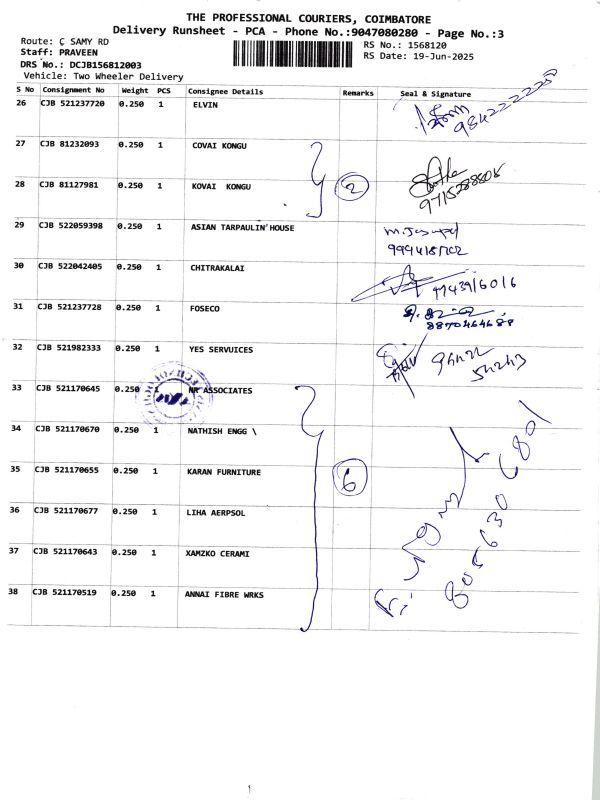 THE PROFESSIONAL COURIERS, COIMBATORE
Delivery Runsheet - PCA - Phone No.:9047080280 - Page No.:3
Route: C SAMY RD
Staff: PRAVEEN
DRS No.: DCJB156812003
Vehicle: Two Wheeler Delivery
RS No.: 1568120
RS Date: 19-Jun-2025
S No Consignment No Weight PCS Consignee Details Remarks Seal & Signature
26 CJB 521237720 0.250 1 ELVIN
984222225
27 CJB 81232093 0.250 1 COVAI KONGU
28 CJB 81127981 0.250 1 KOVAI KONGU 2
9715288805
29 CJB 522059398 0.250 1 ASIAN TARPAULIN'HOUSE
30 CJB 522042405 0.250 1 CHITRAKALAI
9943916016
31 CJB 521237728 0.250 1 FOSECO
8870464688
32 CJB 521982333 0.250 1 YES SERVUICES
94422
54243
33 CJB 521170645 0.250 1 NR ASSOCIATES
34 CJB 521170670 0.250 1 NATHISH ENGG \
35 CJB 521170655 0.250 1 KARAN FURNITURE 6
36 CJB 521170677 0.250 1 LIHA AERPSOL
37 CJB 521170643 0.250 1 XAMZKO CERAMI
38 CJB 521170519 0.250 1 ANNAI FIBRE WRKS
8056306801
1